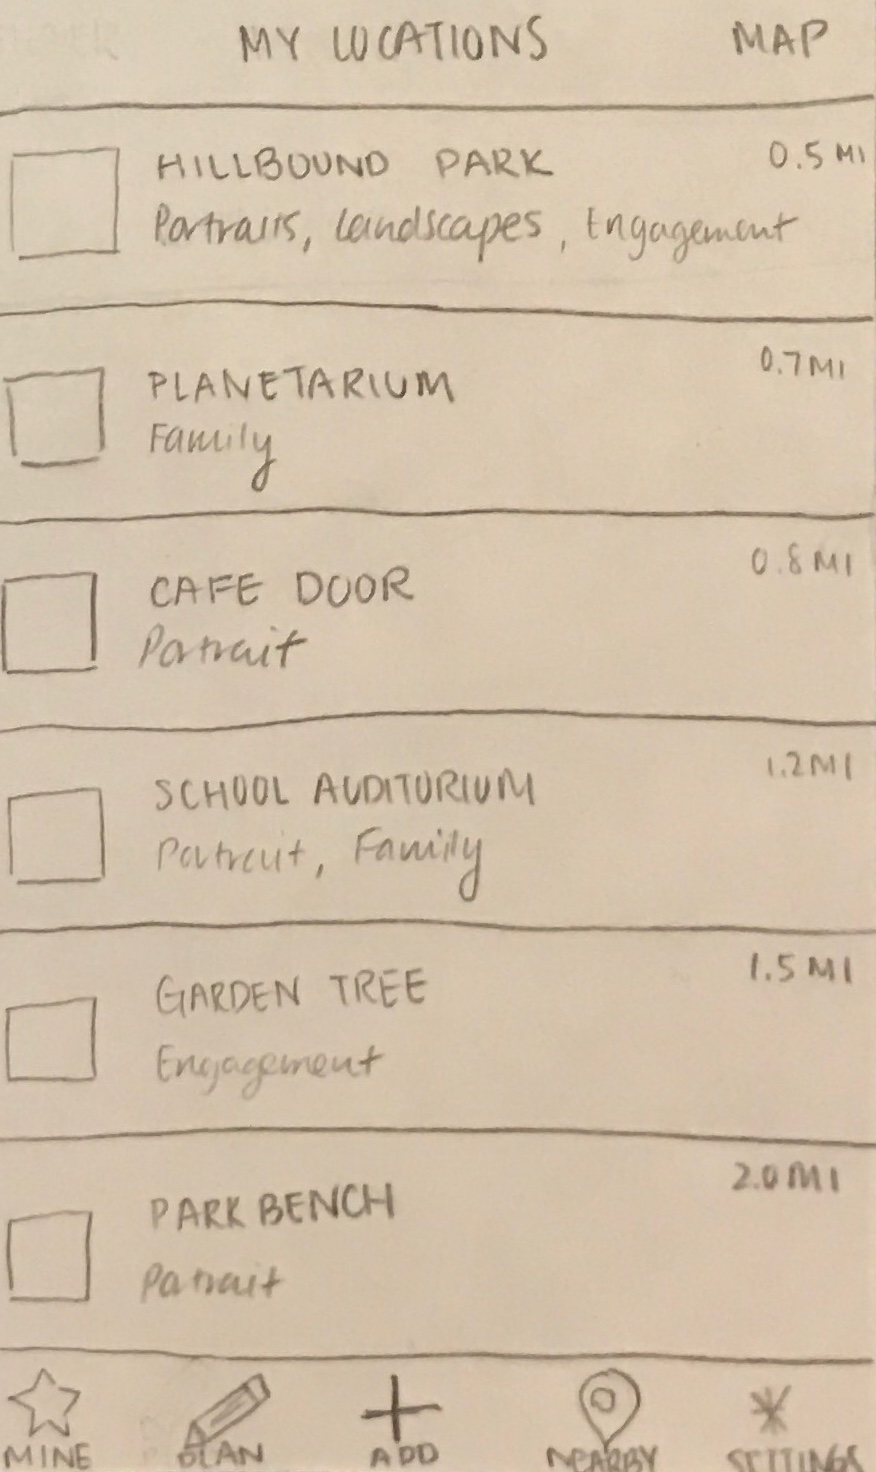 MY LOCATIONS MAP
HILLBOUND PARK 0.5 MI
Portraits, Landscapes, Engagement
PLANETARIUM 0.7 MI
Family
CAFE DOOR 0.8 MI
Portrait
SCHOOL AUDITORIUM 1.2 MI
Portrait, Family
GARDEN TREE 1.5 MI
Engagement
PARK BENCH 2.0 MI
Portrait
MINE PLAN ADD NEARBY SETTINGS